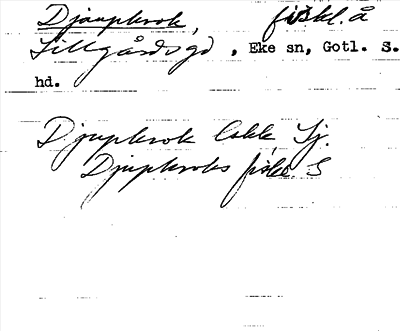 Djaupkrok, fiskl. å
Lillgårds gd, Eke sn, Gotl. S.
hd.
Djupkrok Lakk Sj.
Djupkroks fiske S